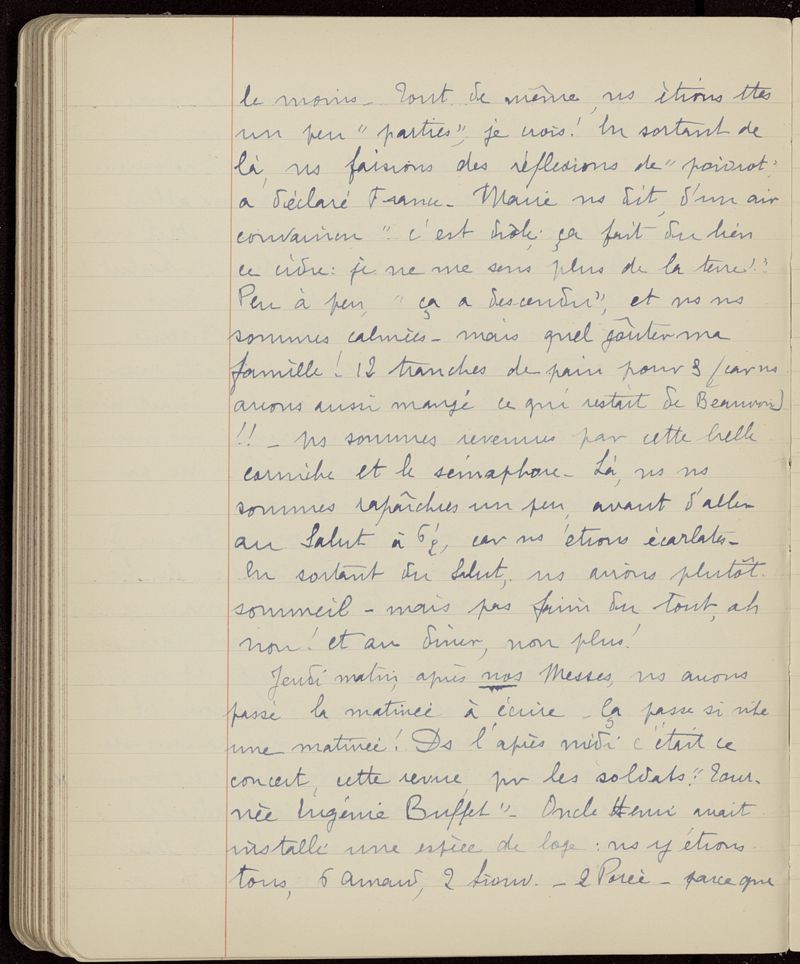 le moins – Tout de même, ns étions ttes
un peu "parties", je crois! En sortant de
là, ns faisions des réflexions de "poivrot",
a déclaré France – Marie ns dit, d'un air
convaincu " c'est drôle : ça fait du bien
ce cidre : je ne me sens plus de la terre!"
Peu à peu, "ça a descendu", et ns ns
sommes calmées – mais quel goûter ma
famille! 12 tranches de pain pour 3 (car ns
avons aussi mangé ce qui restait de Beauvoir)
!! – Ns sommes revenues par cette belle
corniche et le sémaphore – Là, ns ns
sommes rafraîchies un peu, avant d'aller
au Salut à 6½, car ns étions écarlates –
En sortant du Salut, ns avions plutôt
sommeil – mais pas faim du tout, ah
non! et au dîner, non plus!
Jeudi matin, après nos Messes, ns avons
passé la matinée à écrire – Ça passe si vite
une matinée! Ds l'après midi c'était ce
concert, cette revue, pr les soldats : "Tour-
née Eugénie Buffet" – Oncle Henri avait
installé une espèce de loge : ns y étions
tous, 6 2 – 2 Porée – parce que